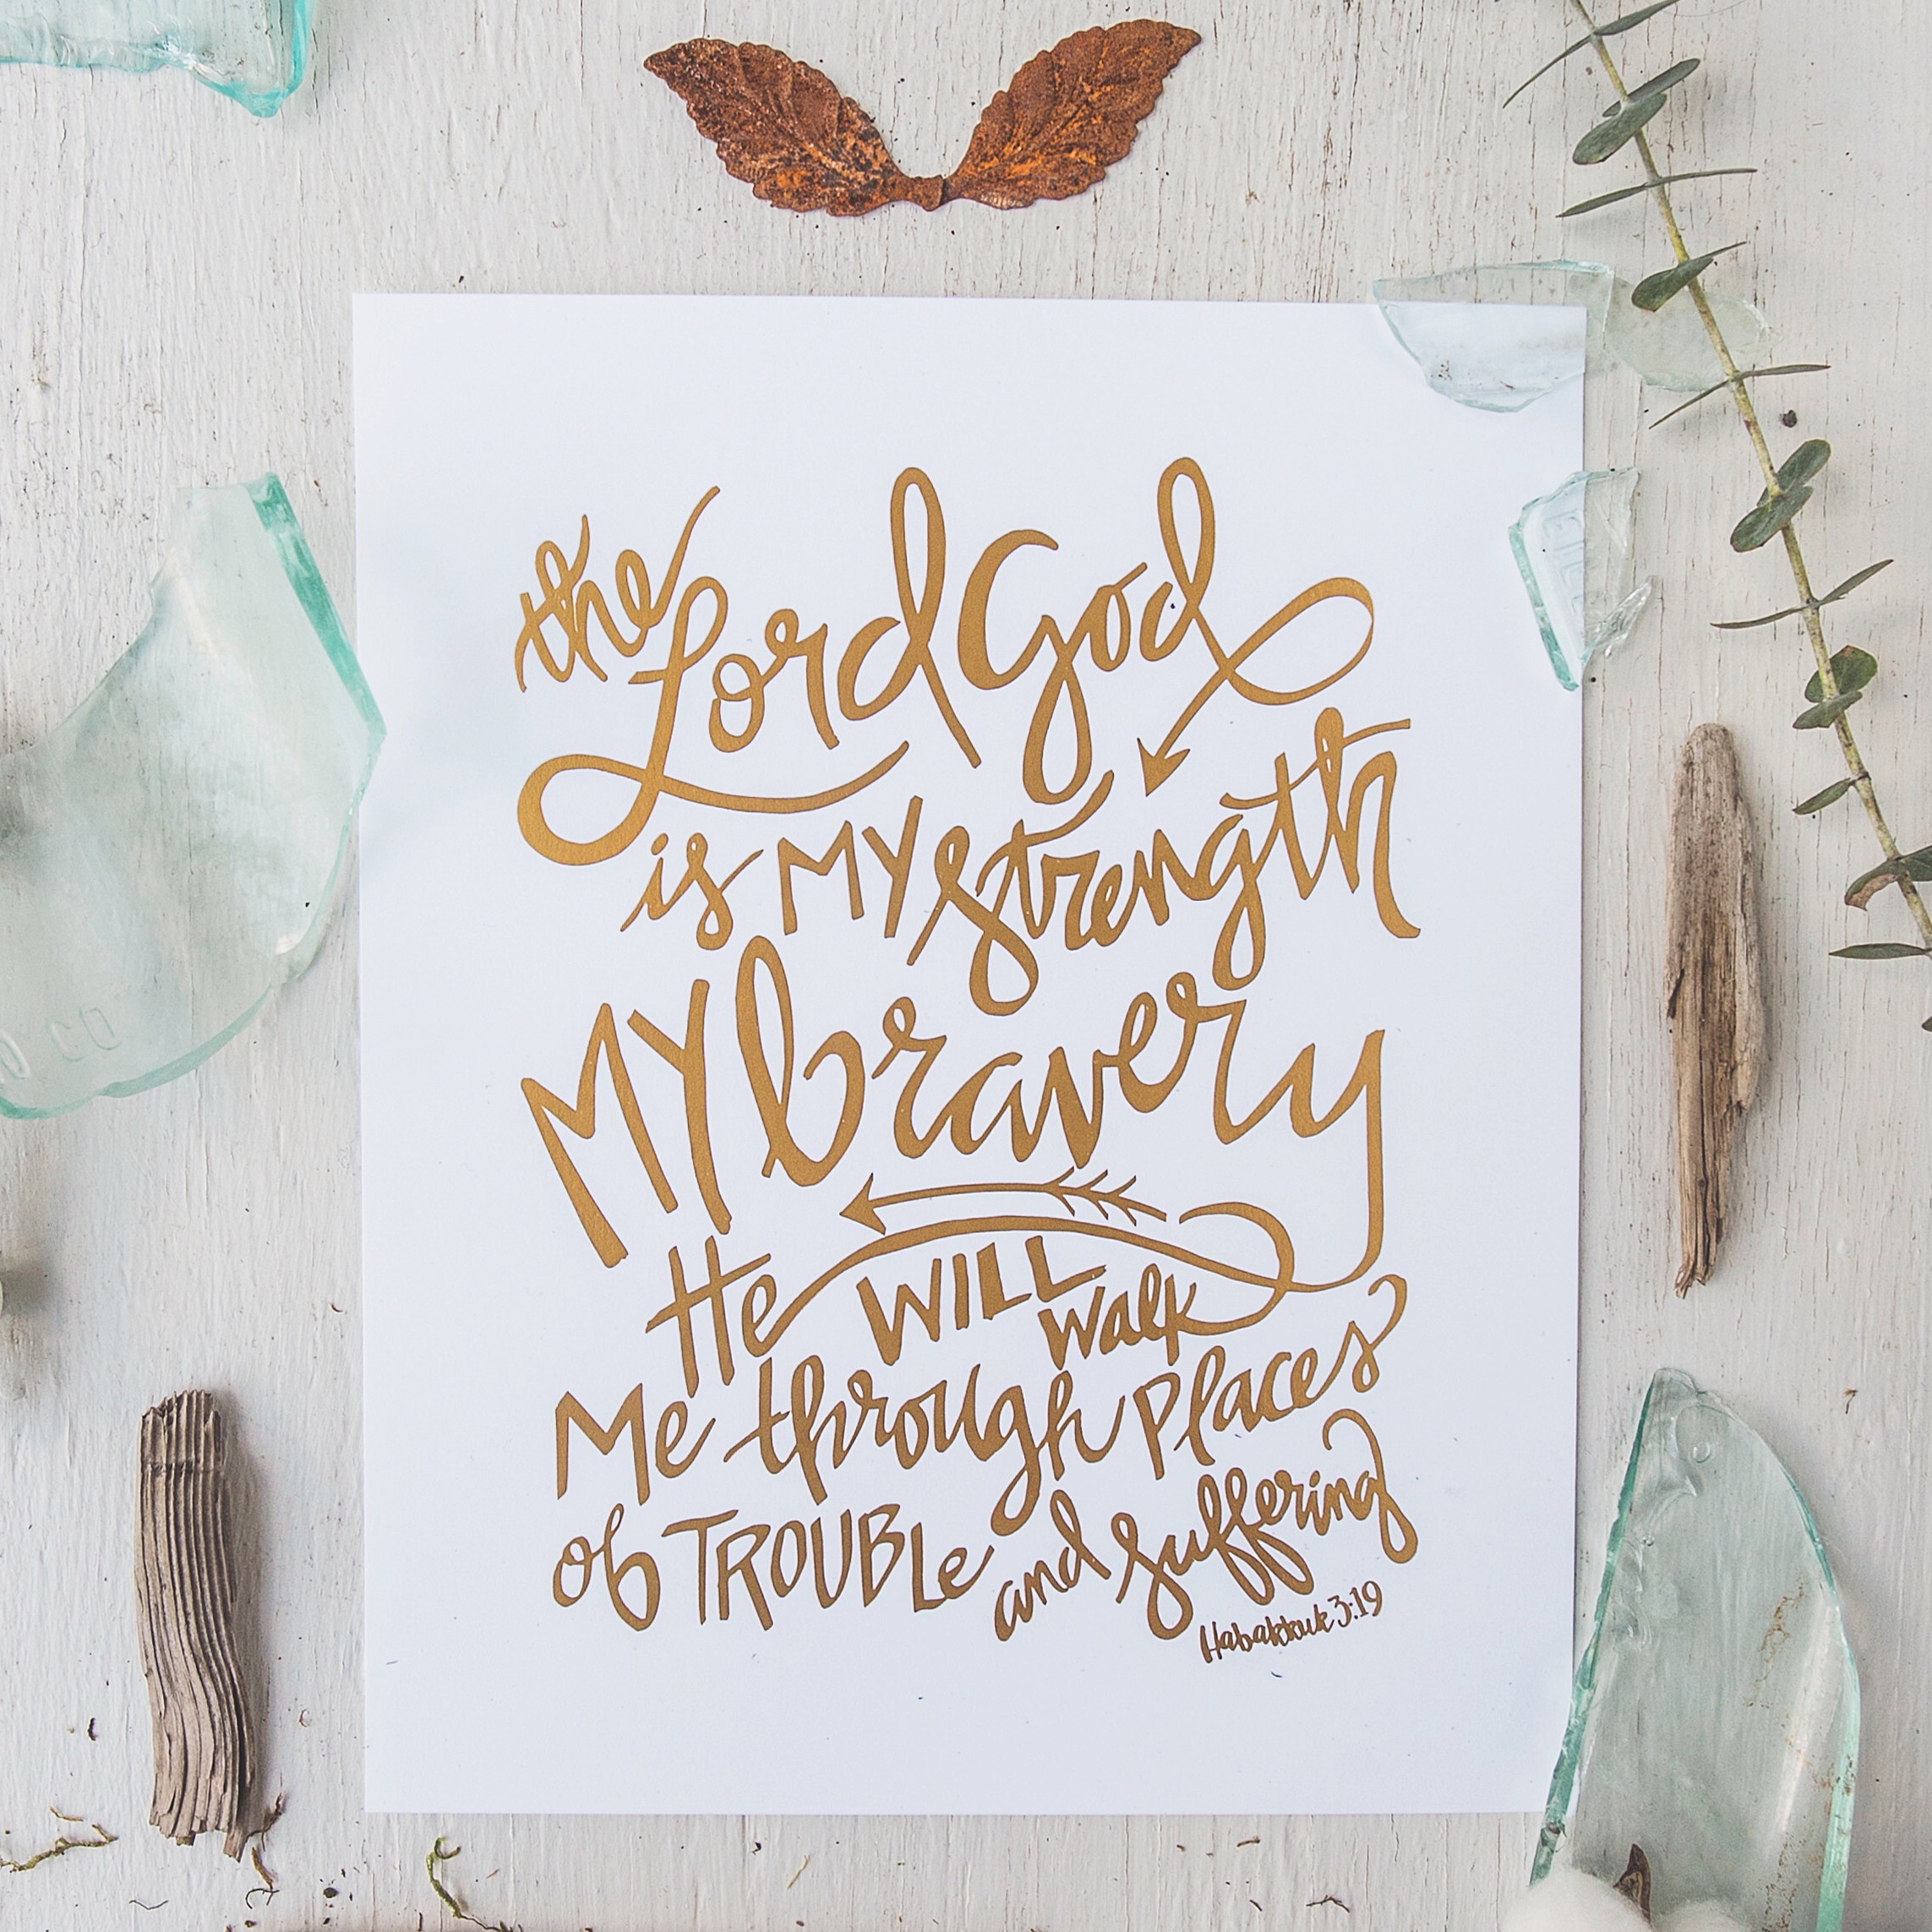 the Lord God
is MY strength
MY bravery
He WILL walk
Me through places
of TROUBLe and suffering
Habakkuk 3:19
CO